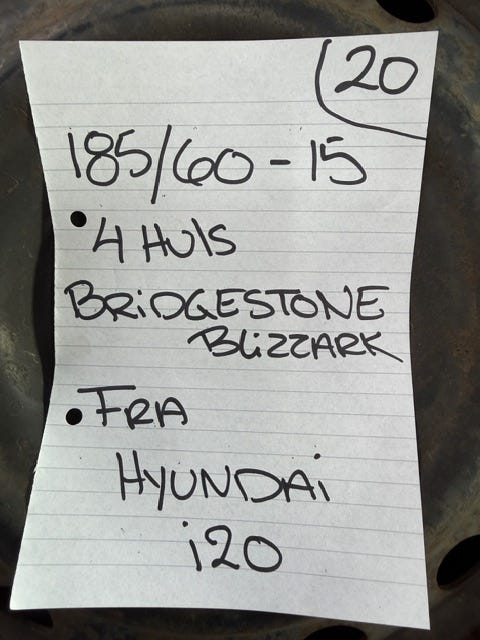 20
185/60-15
4 HULS
BRiDGESTONE
BLiZZARK
FRA
HYUNDAi
i20